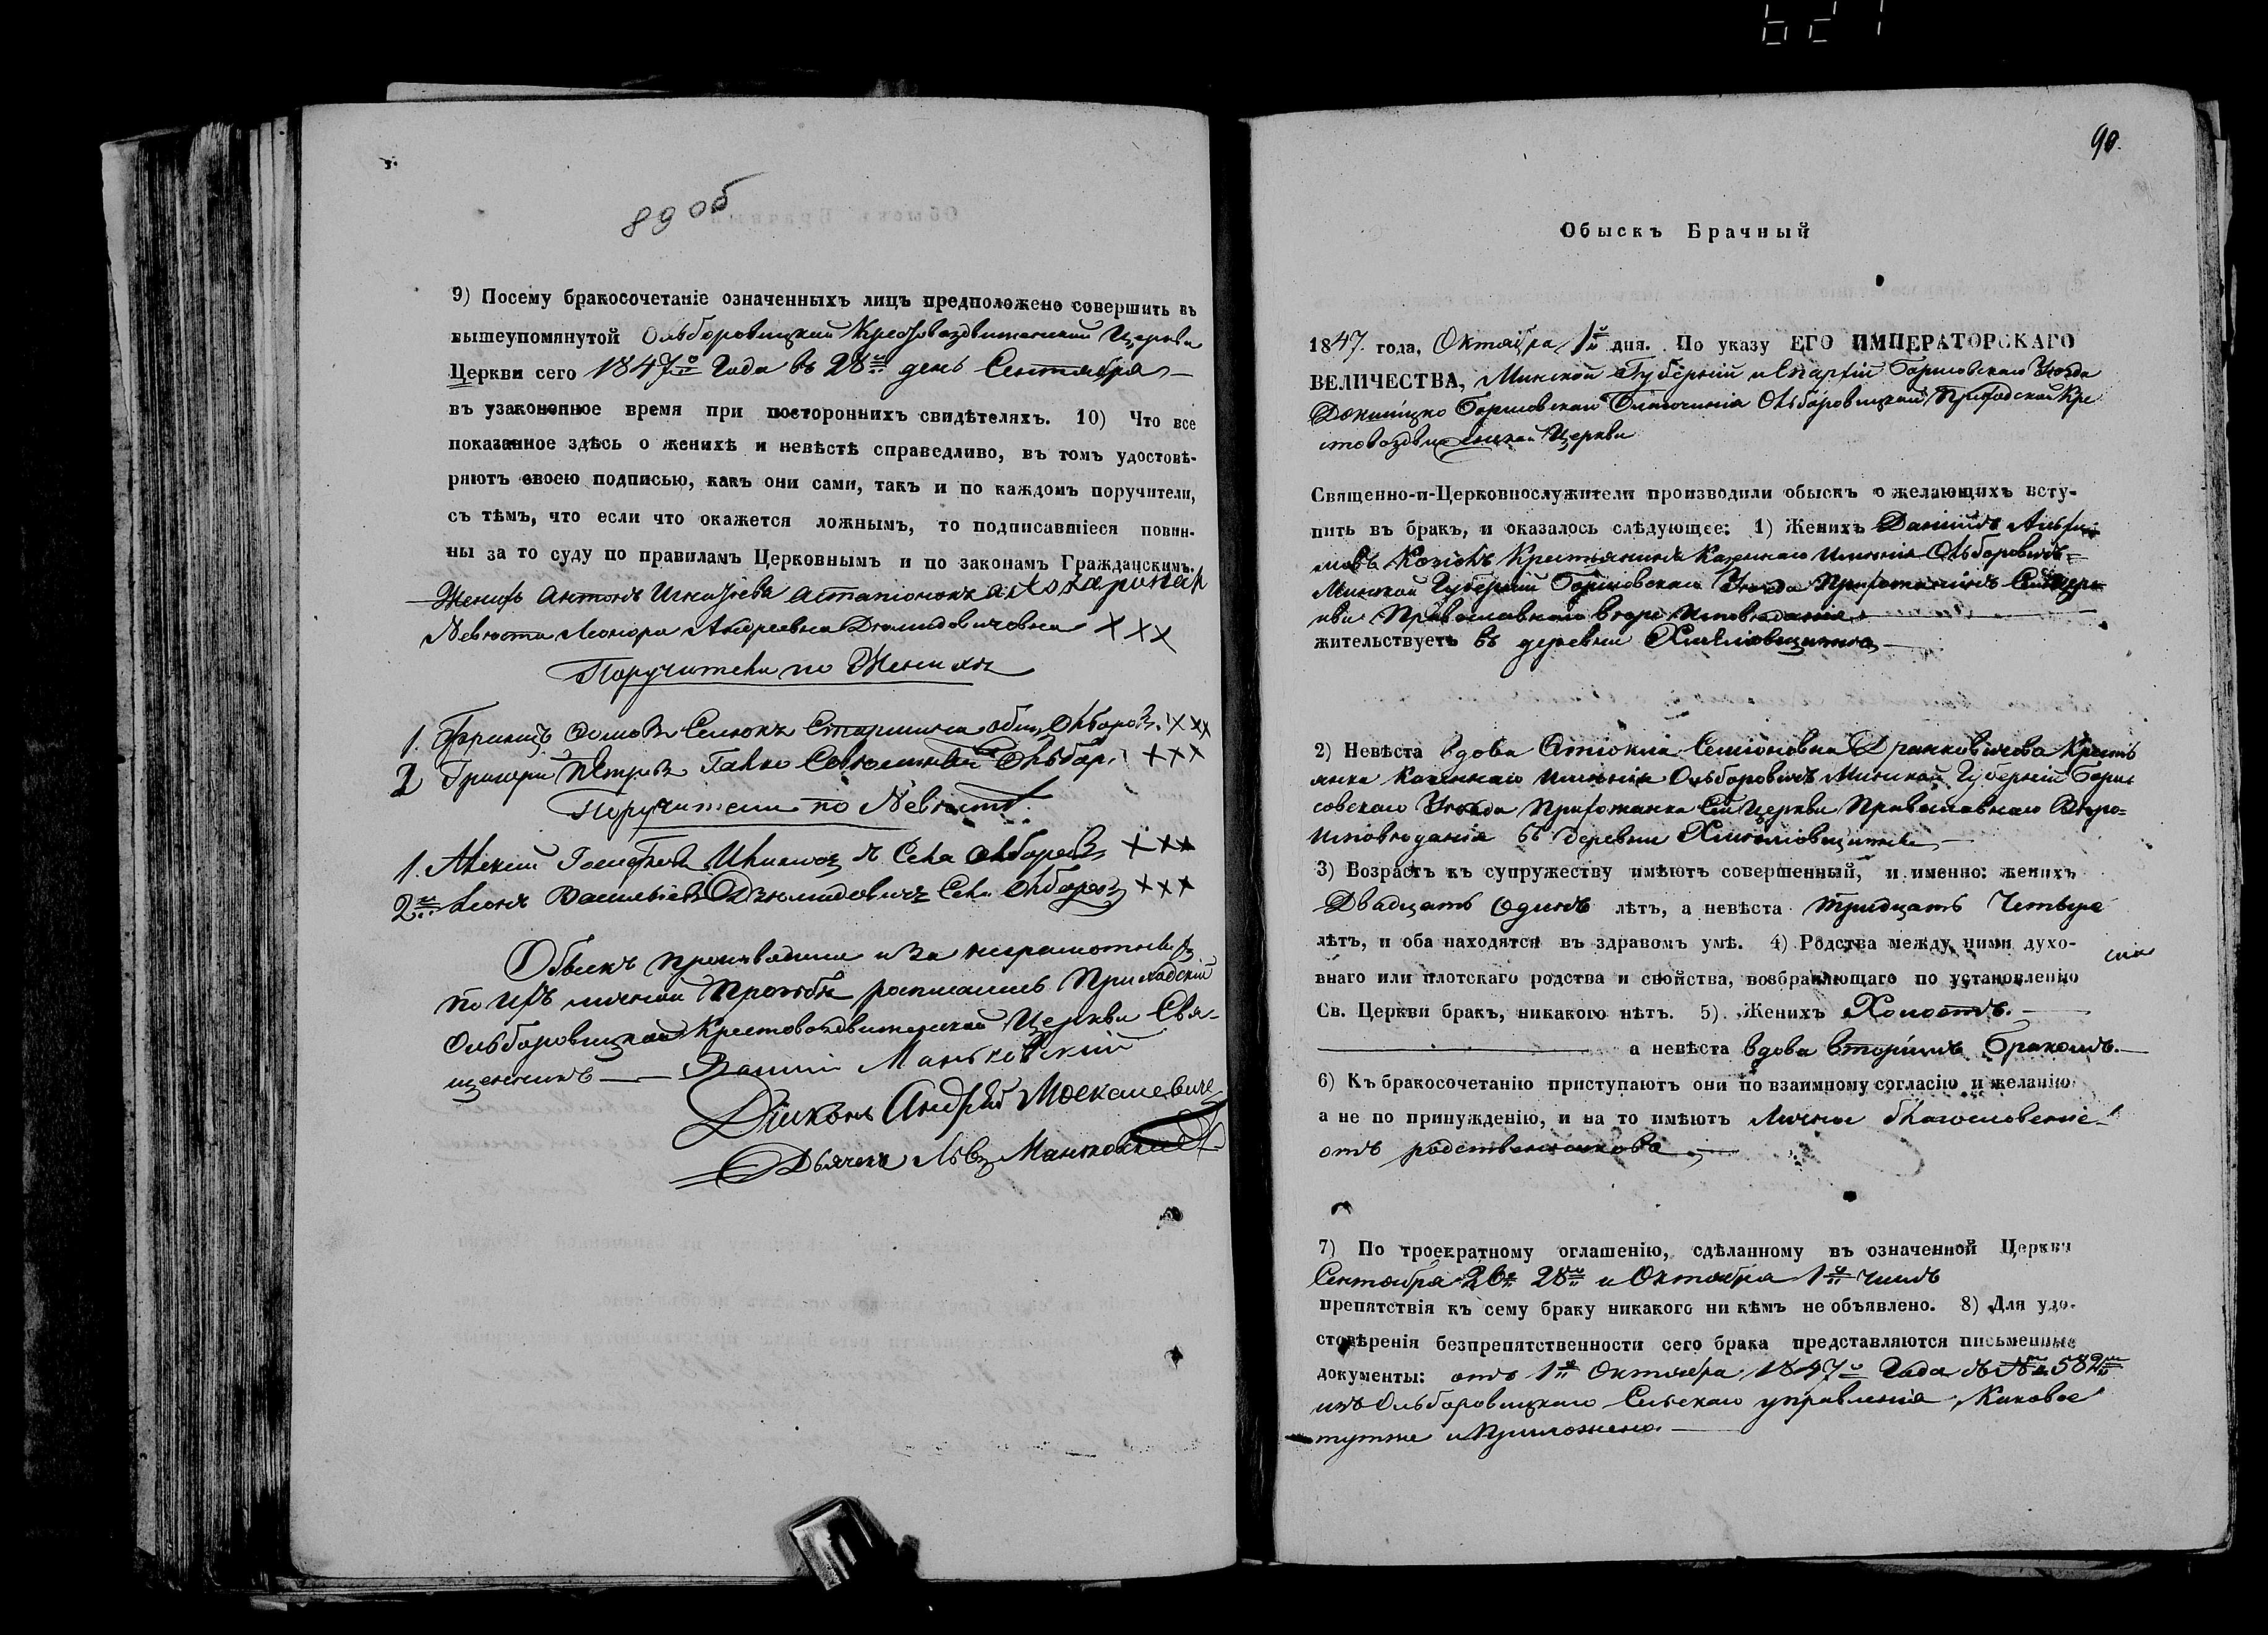 89 об
9) Посему бракосочетаніе означенныхъ лицъ предположено совершить въ
вышеупомянутой Ольборовицкой Крестовоздвиженской Церкви
Церкви сего 1847го Года въ 28й день Сентября
въ узаконенное время при постороннихъ свидѣтеляхъ. 10) Что все
показанное здѣсь о женихѣ и невѣстѣ справедливо, въ томъ удостовѣ-
ряютъ своею подписью, какъ они сами, такъ и по каждомъ поручители,
съ тѣмъ, что если что окажется ложнымъ, то подписавшіеся повин-
ны за то суду по правиламъ Церковнымъ и по законамъ Гражданскимъ.
Женихъ Антонъ Игнатьевъ
Невѣста Леонора Андреевна Дюлидовичовна ХХХ
Поручители по Женихѣ
1. Францъ Старшина общ. Ольборов. ХХХ
2 Григорій Петровъ Ганко Ольбор. ХХХ
Поручители по Невѣстѣ.
1. Алексій Села Ольборов. ХХХ
2й Леонъ Васильевъ Дзюлидовичъ Села Ольборов. ХХХ
Обыскъ производили и за неграмотныхъ
по ихъ личной прозьбѣ росписались Приходскій
Ольборовицкой Крестовоздвиженской Церкви Свя-
щенникъ — Маньковскій
Діаконъ Андрей Москалевичъ
Дьячекъ Левъ Маньковскій
90.
Обыскъ Брачный
1847 года, Октября 1й дня. По указу ЕГО ИМПЕРАТОРСКАГО
ВЕЛИЧЕСТВА, Минской Губерніи и Епархіи Борисовскаго Уѣзда
Докшицко Борисовскаго Благочинія Ольборовицкой Приходской Кре
стовоздвиженской Церкви
Священно-и-Церковнослужители производили обыскъ о желающихъ всту-
пить въ брак, и оказалось слѣдующее: 1) Женихъ Даніилъ
Козіокъ Крестьянинъ Казеннаго имѣнія Ольборовичъ
Минской Губерніи Борисовскаго Уѣзда Прихожанинъ Сей Цер
кви Православнаго Вѣроисповѣданія
жительствуетъ въ деревни
2) Невѣста вдова Семіоновна Кресть
янка Казеннаго имѣнія Ольборовичъ Минской Губерніи Бори
совскаго Уѣзда Прихожанка Сей Церкви Православнаго Вѣро-
исповѣданія въ деревни
3) Возрастъ къ супружеству имѣютъ совершенный, и именно: женихъ
Двадцать Одинъ лѣтъ, а невѣста тридцать Четыре
лѣтъ, и оба находятся въ здравомъ умѣ. 4) Родства между ними духо-
внаго или плотскаго родства и свойства, возбраняющаго по установленію
Св. Церкви брак, никакого нѣтъ. 5) Женихъ Холостъ.
а невѣста вдова вторымъ бракомъ.
6) Къ бракосочетанію приступаютъ они по взаимному согласію и желанію
а не по принужденію, и на то имѣютъ Личное благословеніе
отъ родственниковъ
7) По троекратному оглашенію, сдѣланному въ означенной Церкви
Сентября 26го 28го и Октября 1го числъ
препятствія къ сему браку никакого ни кѣмъ не объявлено. 8) Для удо-
стовѣренія безпрепятственности сего брака представляются письменные
документы: отъ 1го Октября 1847го Года за № 582мъ
изъ Ольборовицкаго Сельскаго управленія, Каковое
тутже и Приложено.